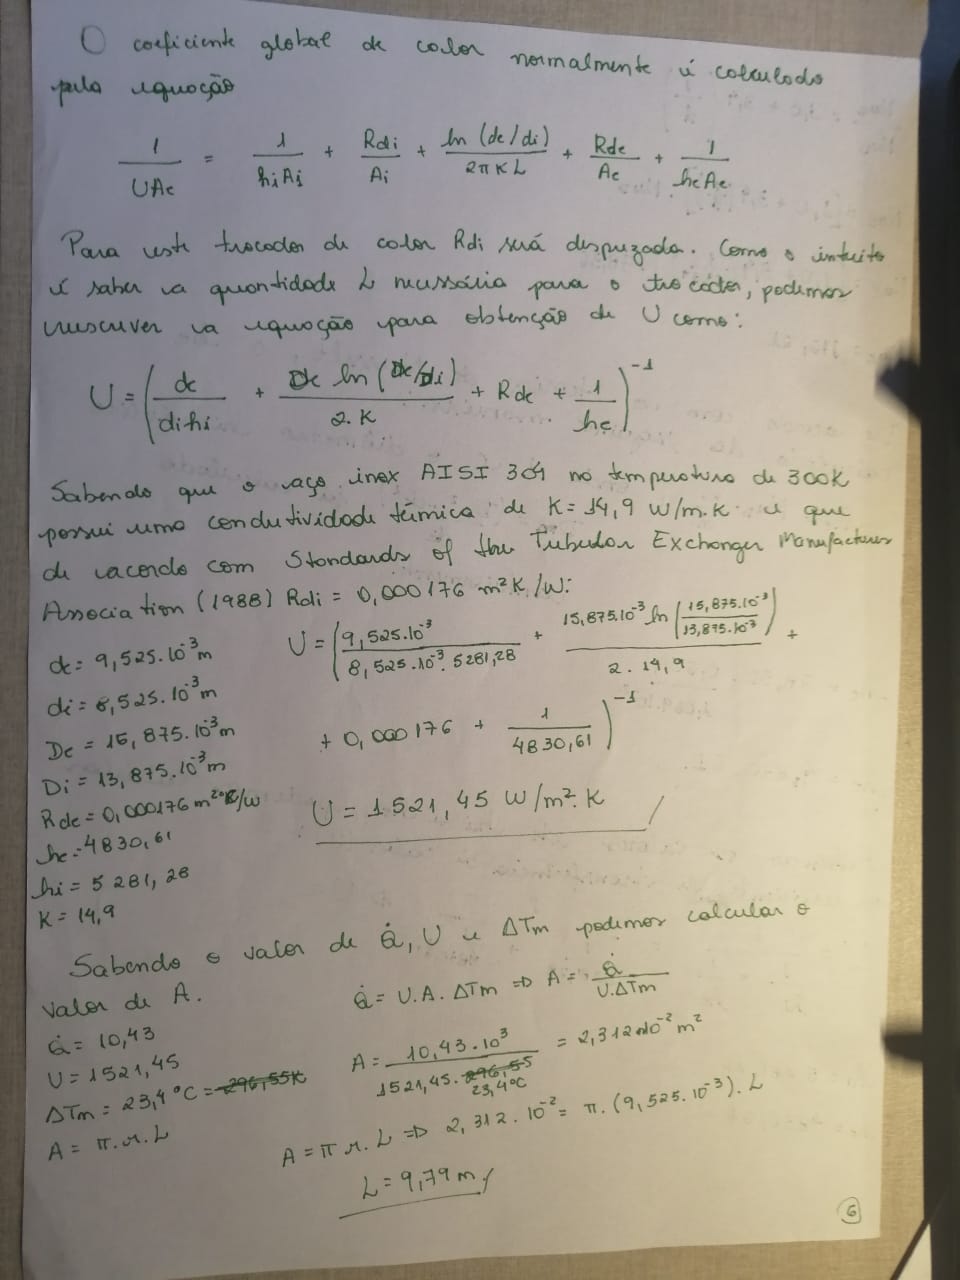 O coeficiente global de calor normalmente é calculado
pela equação
1/UAe = 1/hiAi + Rdi/Ai + ln(de/di)/2πKL + Rde/Ae + 1/heAe
Para este trocador de calor Rdi será desprezada. Como o intuito
é saber a quantidade L necessária para o trocador, podemos
reescrever a equação para obtenção de U como:
U = (de/dihi + De ln(De/Di)/2.K + Rde + 1/he)^-1
Sabendo que o aço inox AISI 304 na temperatura de 300K
possui uma condutividade térmica de K = 14,9 W/m.K e que
de acordo com Standards of the Tubular Exchanger Manufactures
Association (1988) Rdi = 0,000176 m²K/W:
U = (9,525.10^-3/8,525.10^-3.5281,28 + 15,875.10^-3 ln(15,875.10^-3/13,875.10^-3)/2.14,9 +
+ 0,000176 + 1/4830,61)^-1
U = 1521,45 W/m².K
de = 9,525.10^-3 m
di = 8,525.10^-3 m
De = 15,875.10^-3 m
Di = 13,875.10^-3 m
Rde = 0,000176 m²°C/W
he = 4830,61
hi = 5281,28
K = 14,9
Sabendo o valor de Q̇, U e ΔTm podemos calcular o
valor de A.
Q̇ = U.A.ΔTm => A = Q̇/U.ΔTm
Q̇ = 10,43
U = 1521,45
ΔTm = 23,4°C = 296,55K
A = π.r.L
A = 10,43.10³/1521,45.296,55 23,4°C = 2,312.10^-2 m²
A = π r.L => 2,312.10^-2 = π.(9,525.10^-3).L
L = 9,79 m
6